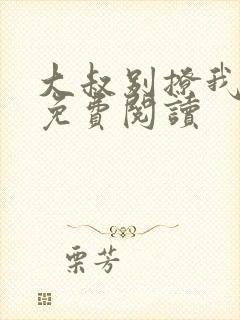 大叔别撩我
免費閱讀
栗芳